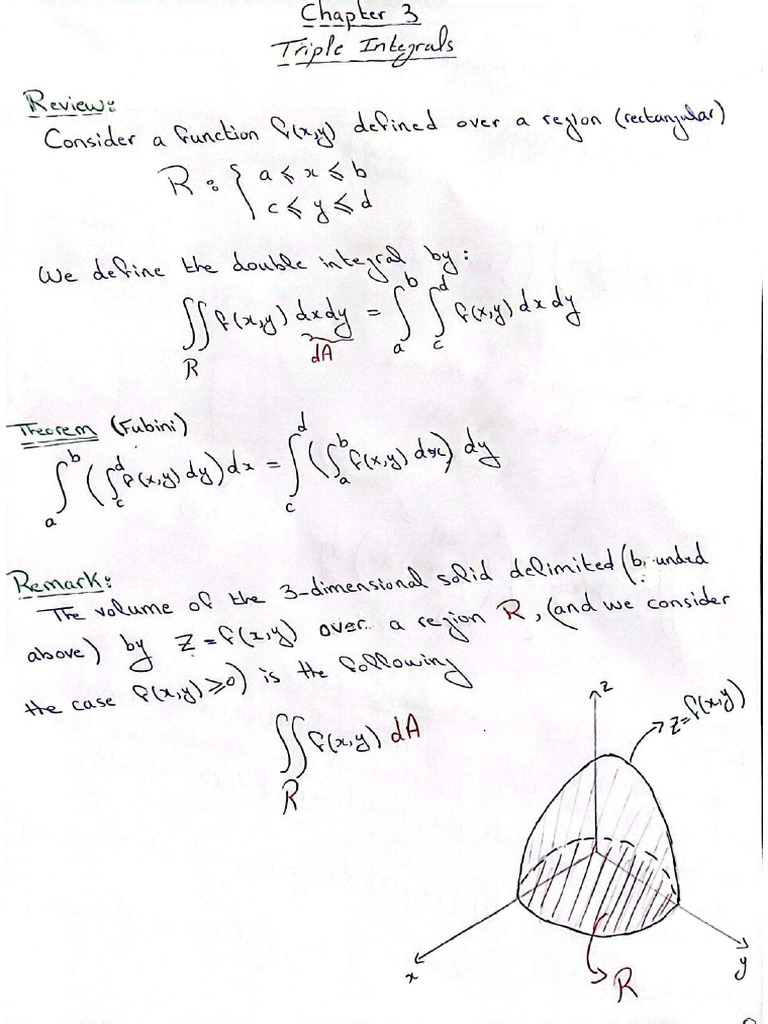 Chapter 3
Triple Integrals
Review:
Consider a function f(x,y) defined over a region (rectangular)
R: { a ⩽ x ⩽ b
c ⩽ y ⩽ d
We define the double integral by:
∬_R f(x,y) dxdy = ∫_a^b ∫_c^d f(x,y) dx dy
dA
Theorem (Fubini)
∫_a^b (∫_c^d f(x,y) dy) dx = ∫_c^d (∫_a^b f(x,y) dx) dy
Remark:
The volume of the 3-dimensional solid delimited (bounded
above) by z = f(x,y) over a region R, (and we consider
the case f(x,y) ⩾ 0) is the following
∬_R f(x,y) dA
z
z = f(x,y)
x
y
R